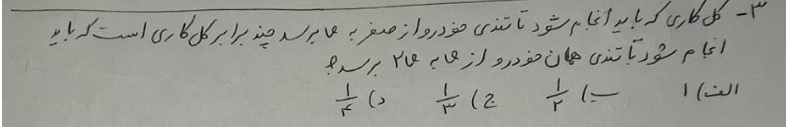 ۳- کل کاری که باید انجام شود تا تندی خودرو از صفر به v برسد چند برابر کل کاری است که باید
انجام شود تا تندی همان خودرو از v به ۲v برسد؟
الف) ۱ ب) ۱/۲ ج) ۱/۳ د) ۱/۴